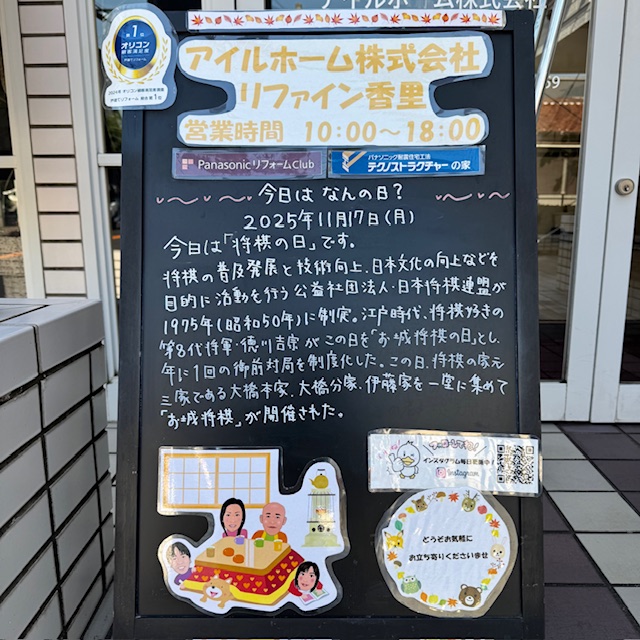 アイルホーム株式会社
第1位
オリコン
顧客満足度
戸建てリフォーム
アイルホーム株式会社
リファイン香里
営業時間 10:00〜18:00
Panasonic リフォームClub
パナソニック耐震住宅工法
テクノストラクチャーの家
今日は なんの日?
2025年11月17日(月)
今日は「将棋の日」です。
将棋の普及発展と技術向上、日本文化の向上などを
目的に活動を行う公益社団法人・日本将棋連盟が
1975年(昭和50年)に制定。江戸時代、将棋好きの
第8代将軍・徳川吉宗がこの日を「お城将棋の日」とし、
年に1回の御前対局を制度化した。この日、将棋の家元
三家である大橋本家、大橋分家、伊藤家を一堂に集めて
「お城将棋」が開催された。
フォローしてね!
インスタグラム毎日更新中!
Instagram
どうぞお気軽に
お立ち寄りくださいませ